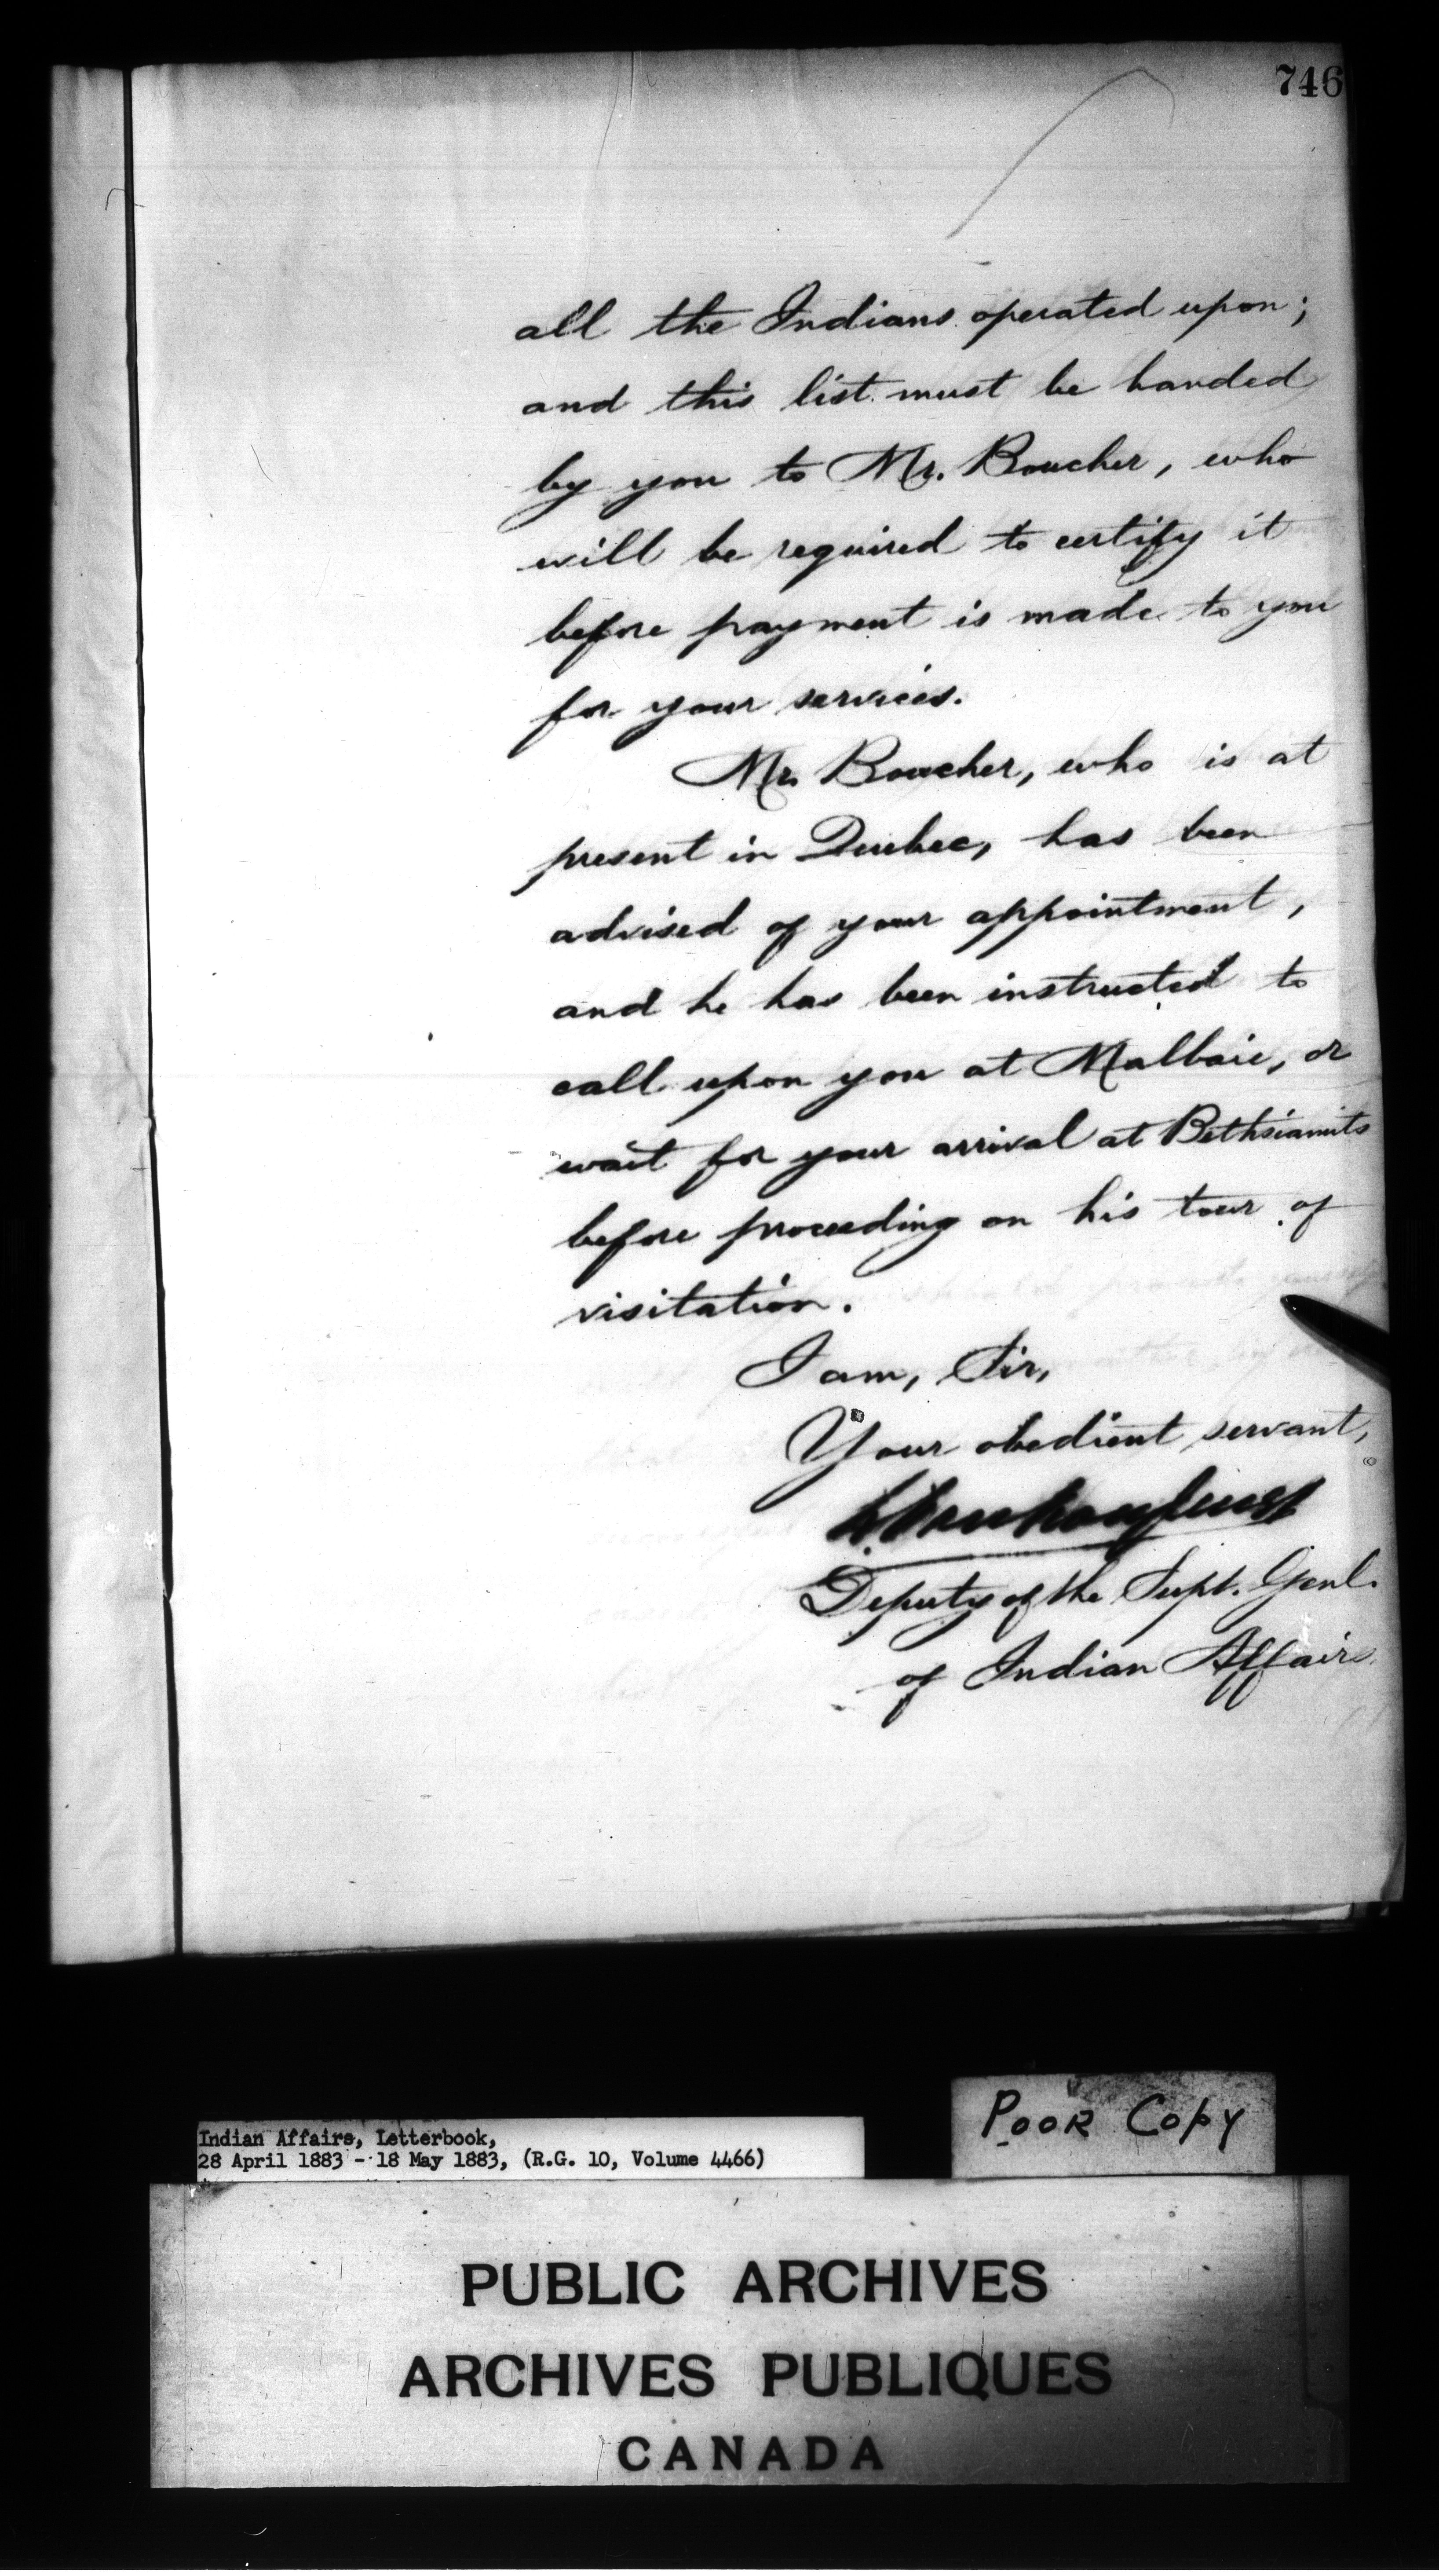 746
all the Indians operated upon;
and this list must be handed
by you to Mr. Boucher, who
will be required to certify it
before payment is made to you
for your services.
Mr. Boucher, who is at
present in Quebec, has been
advised of your appointment,
and he has been instructed to
call upon you at Malbaie, or
wait for your arrival at Bethsiamits
before proceeding on his tour of
visitation.
I am, Sir,
Your obedient servant,
Deputy of the Supt. Genl.
of Indian Affairs.
POOR COPY
Indian Affairs, Letterbook,
28 April 1883 - 18 May 1883, (R.G. 10, Volume 4466)
PUBLIC ARCHIVES
ARCHIVES PUBLIQUES
CANADA